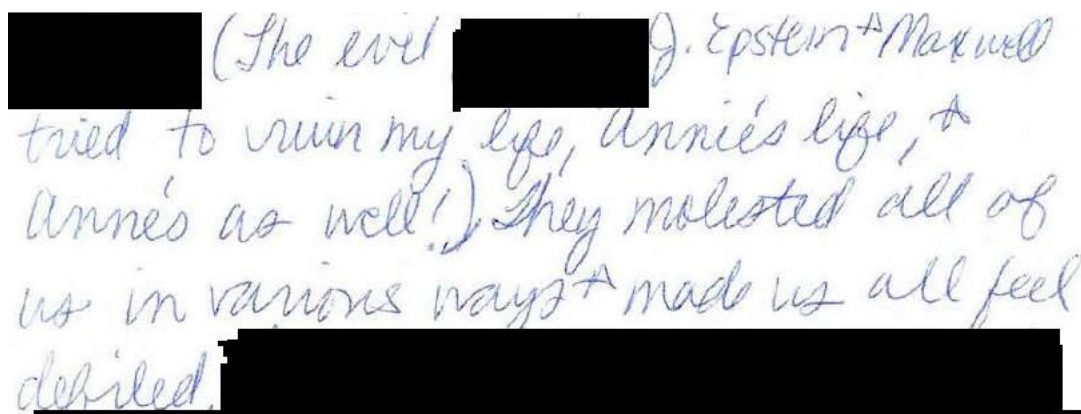 (The evil J. Epstein + Maxwell
tried to ruin my life, Annie's life, +
Anne's as well!) They molested all of
us in various ways + made us all feel
defiled.